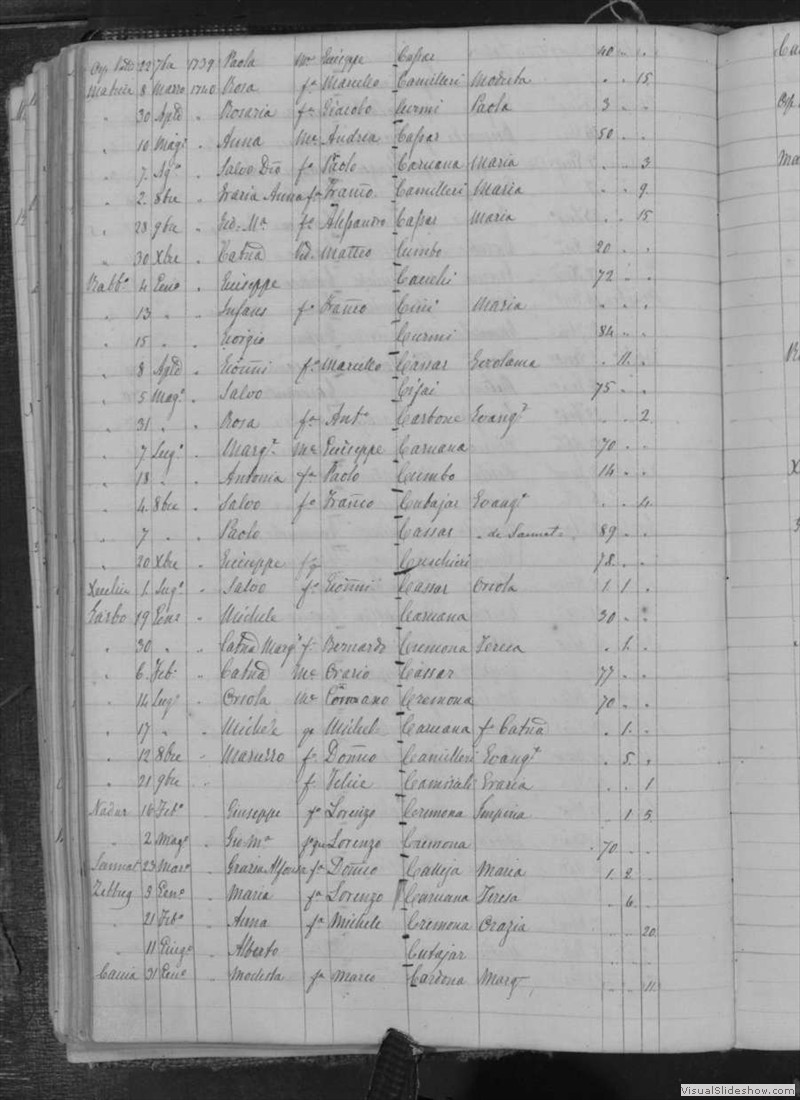 22 7bre 1739 Paola Me Giuseppe Cassar 40 . .
Matrice 8 Marzo 1740 Rosa fa Marcello Camilleri Modesta . . 15
" 30 Aple " Rosaria fa Giacobo Curmi Paola 3 . .
" 10 Magg " Anna Me Andrea Cassar 50 . .
" 7 Ago " Salvo fo Paolo Caruana Maria . . 3
" 2 8bre " Grazia Anna fa Franco Camilleri Maria . . 9
" 23 9bre " Gio. Ma fo Alessandro Cassar Maria . . 15
" 30 Xbre " Catna Vid. Matteo Cumbo 20 . .
Rabbo 4 Geno " Giuseppe Cauchi 72 . .
" 13 " " Infans fo Franco Cini Maria . . .
" 15 " " Giorgio Curmi 84 . .
" 8 Aple " Gionni fo Marcello Cassar Gerolama . 11 .
" 5 Mago " Salvo 75 . .
" 31 " " Rosa fa Anto Carbone Evanga . . 2
" 7 Lugo " Margta Me Giuseppe Caruana 70 . .
" 18 " " Antonia fa Paolo Cumbo 14 . .
" 4 8bre " Salvo fo Franco Cutajar Evanga . . 4
" 7 " " Paolo Cassar de Sannat 89 . .
" 20 Xbre " Giuseppe 78 . .
1 Lugo " Salvo fo Gionni Cassar Orsola 1 1 .
Garbo 19 Geno " Michele Caruana 30 . .
" 30 " " Catna Marga fa Bernardo Cremona Teresa . 1 .
" 6 Feb. " Catna Me Orazio Cassar 77 . .
" 14 Lugo " Orsola Me Cremona 70 . .
" 17 " " Michele Michele Caruana fo Catna . 1 .
" 12 8bre " Maruzzo fo Domco Camilleri Evanga . 5 .
" 21 9bre " f. Felice Grazia . . 1
Nadur 16 Febo " Giuseppe fo Lorenzo Cremona Imperia . 1 5
" 2 Mago " Gio Ma Lorenzo Cremona 70 . .
Sannat 23 Maro " Grazia Alfonsa fa Domco Calleja Maria 1 2 .
Zebbug 3 Geno " Maria fa Lorenzo Caruana Teresa . 6 .
" 21 Febo " Anna fa Michele Cremona Orazia . . 20
" 11 Giugo " Alberto Cutajar
Caccia 31 Geno " Modesta fa Marco Cardona Marg . . 11
VisualSlideshow.com